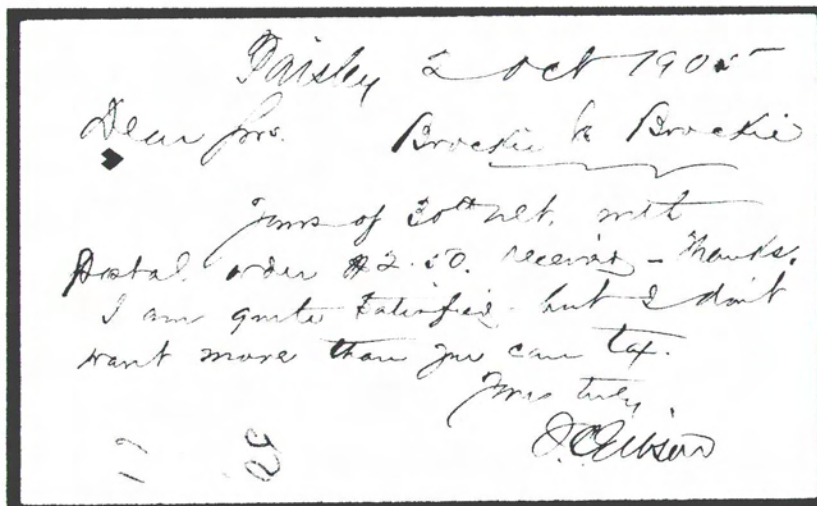 Paisley 2 Oct 1905
Dear Sirs. Brockie v Brockie
Yours of 30th ult. with
Postal order $2.50. received - Thanks.
I am quite satisfied - but I don't
want more than you can tax.
Yours truly
J.C. Gibson